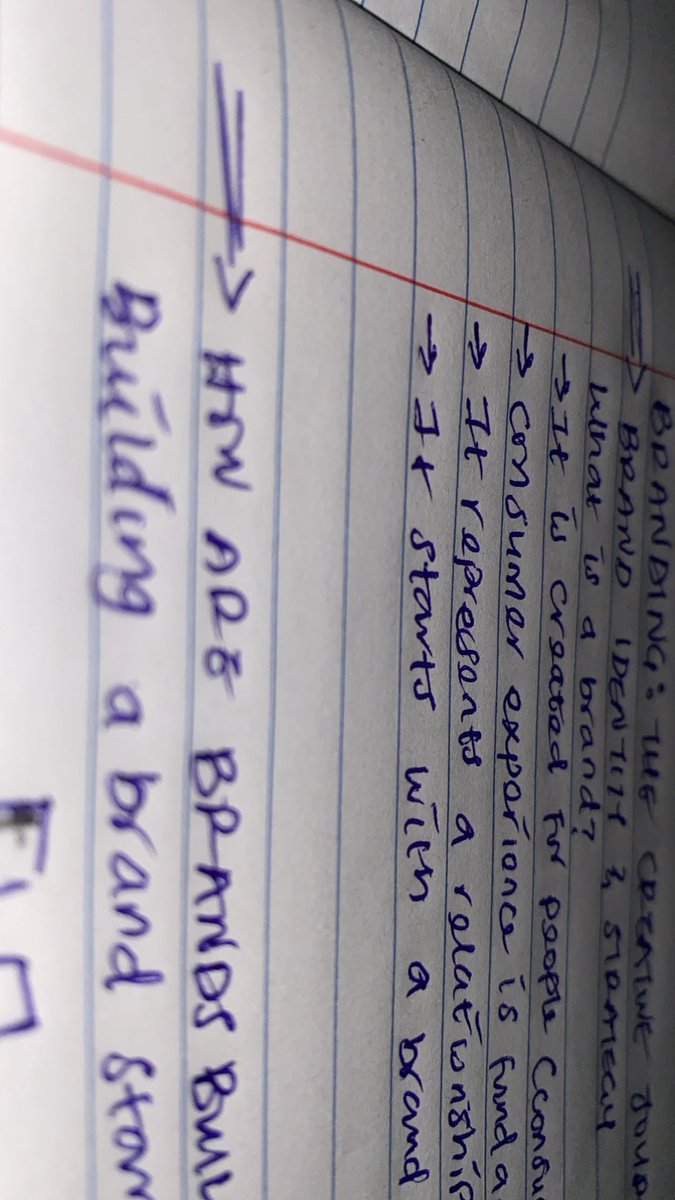 BRANDING: THE CREATIVE JOU
⇒ BRAND IDENTITY & STRATEGY
What is a brand?
→ It is created for people (consu
→ Consumer experience is funda
→ It represents a relationship
→ It starts with a brand
⇒ HOW ARE BRANDS BUIL
Building a brand star